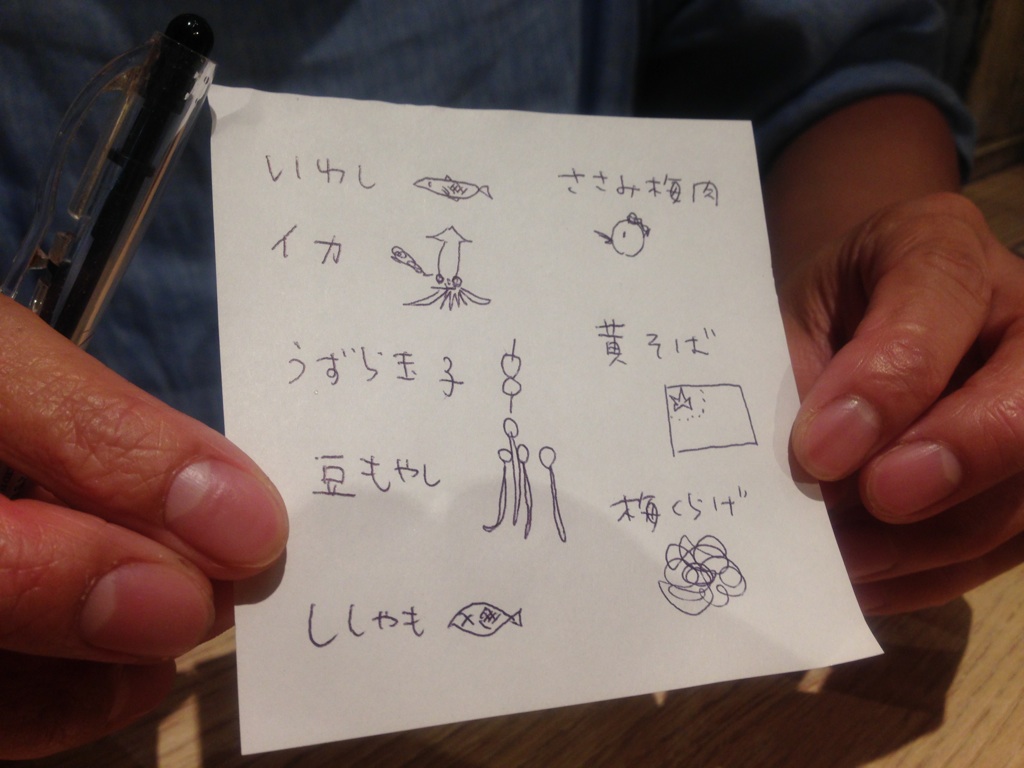 いわし
イカ
うずら玉子
豆もやし
ししゃも
ささみ梅肉
黄そば
梅くらげ